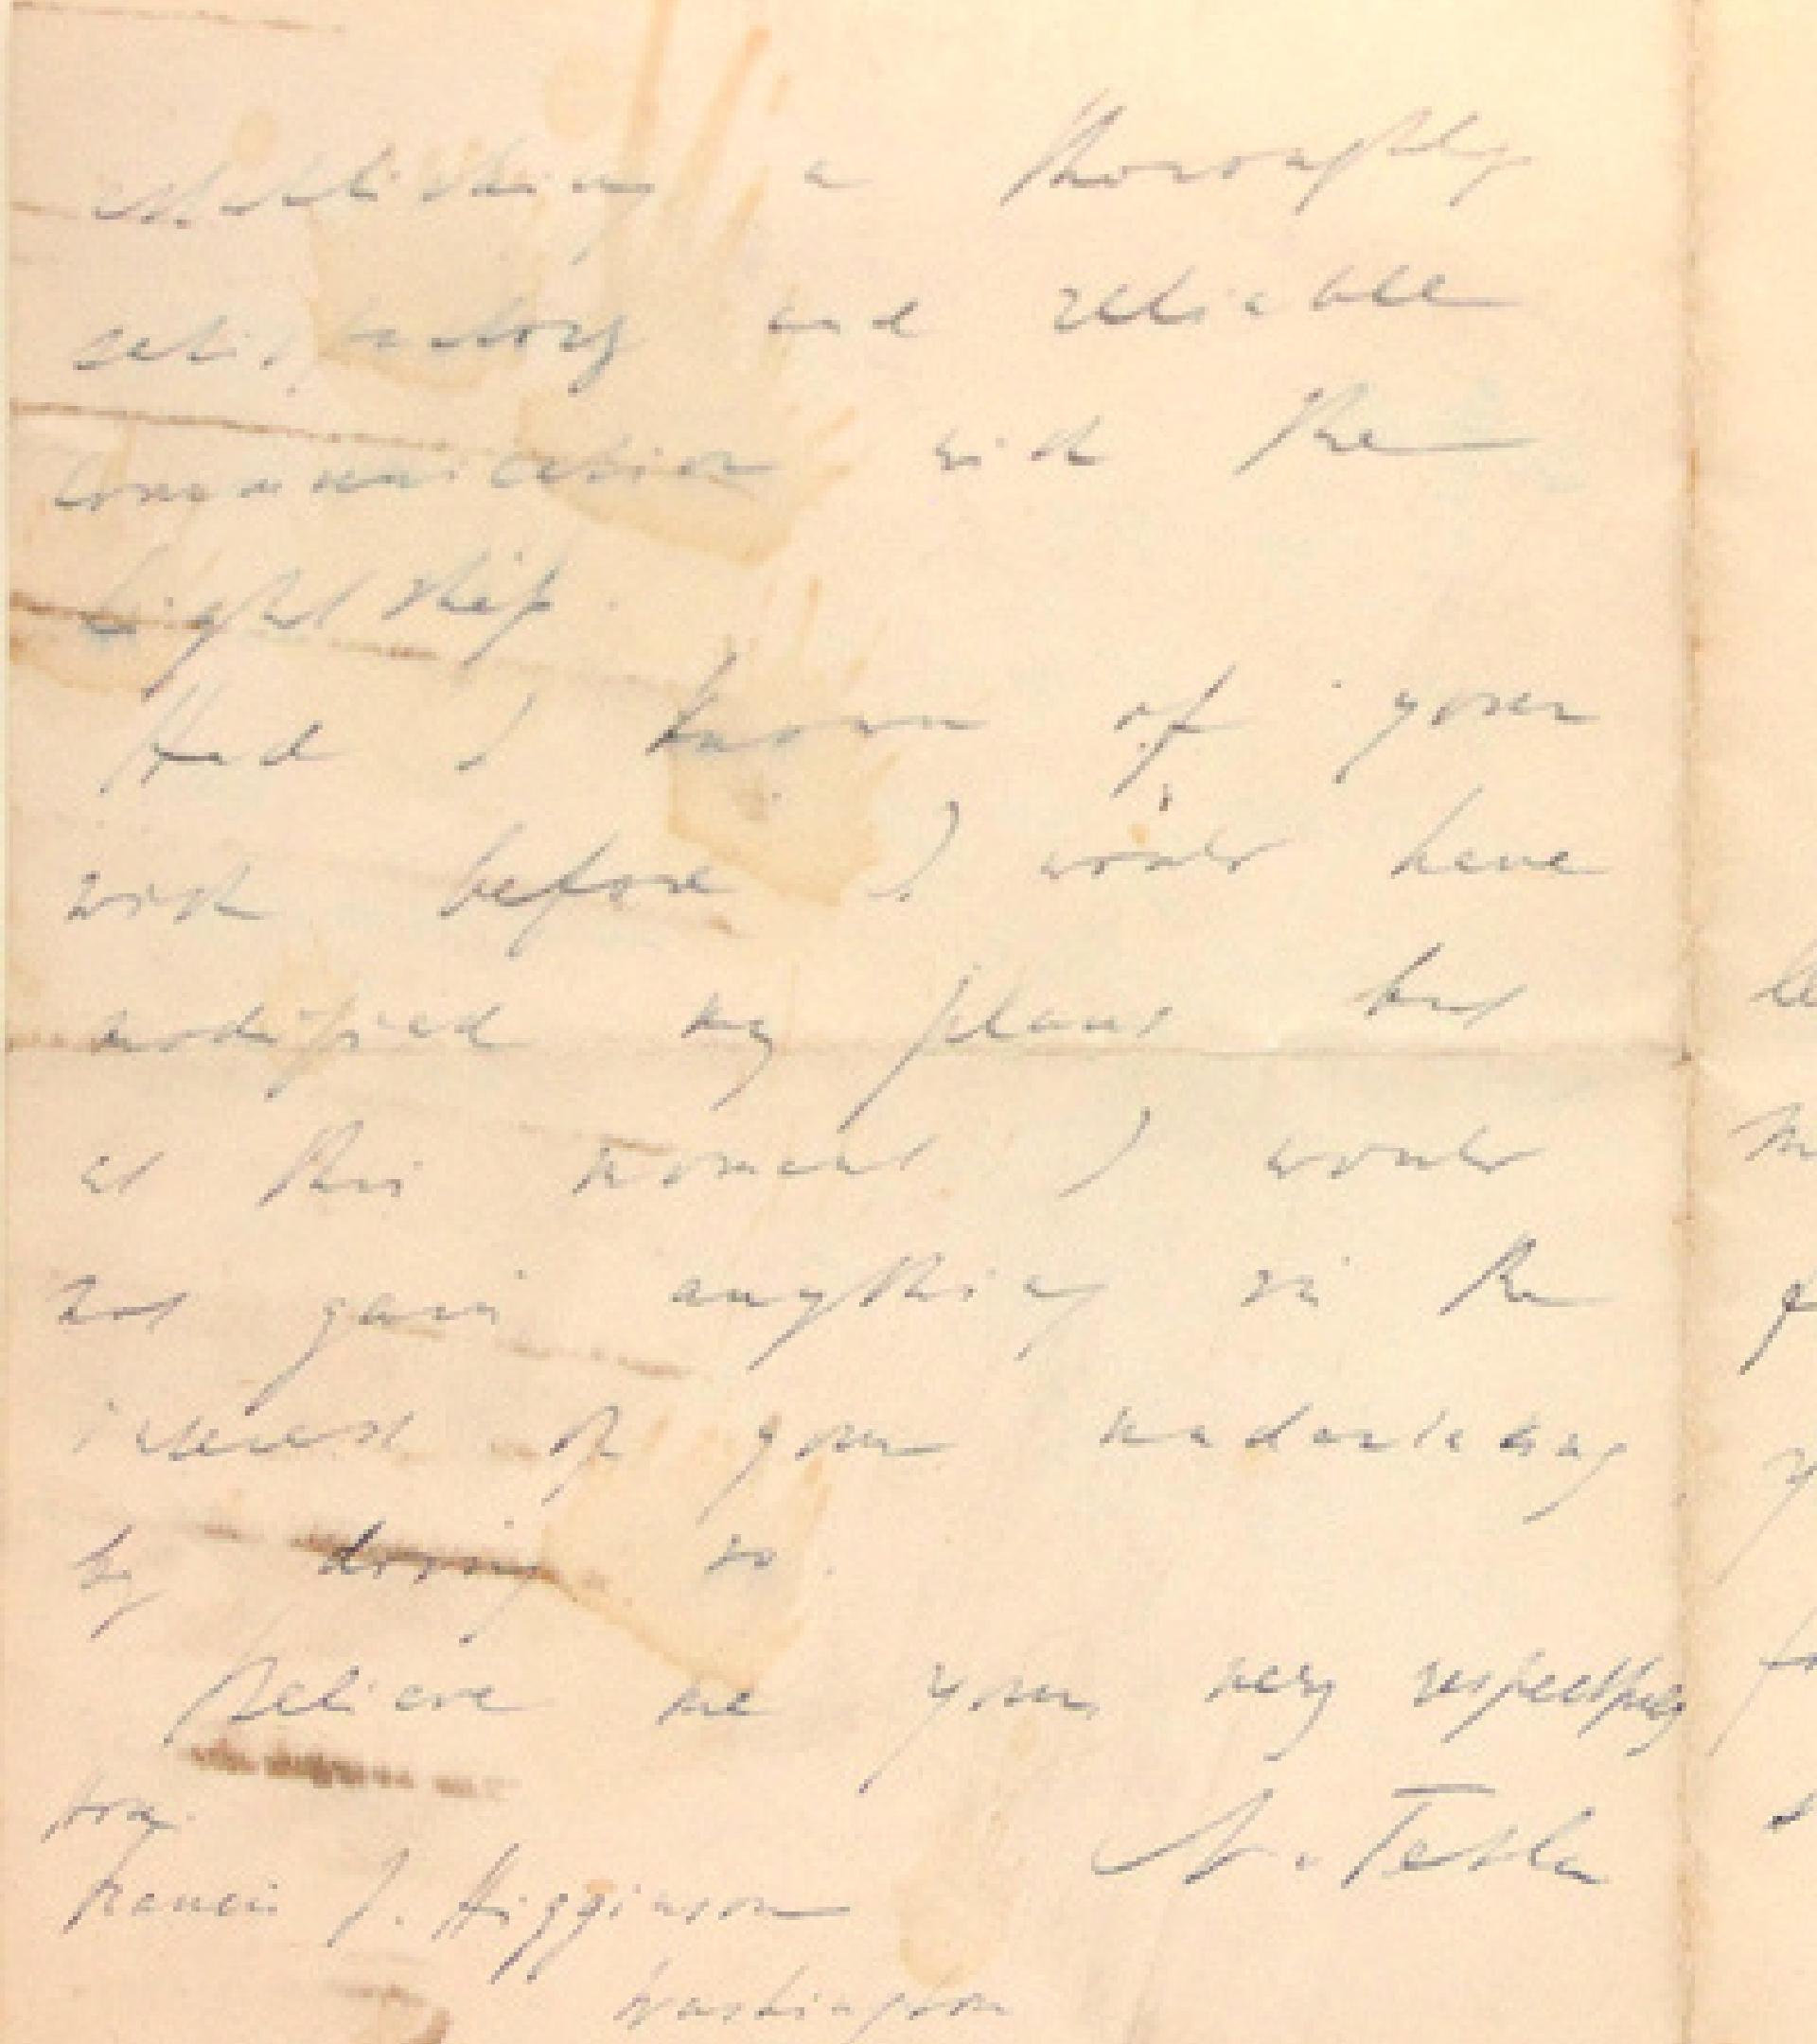 establishing a thoroughly
satisfactory and reliable
communication with the
Light Ship.
Had I known of your
wish before I would have
modified my plans but
at this moment I would
not gain anything in the
interest of your undertaking
by doing so.
Believe me yours very respectfully
N. Tesla
Hon.
Francis J. Higginson
Washington